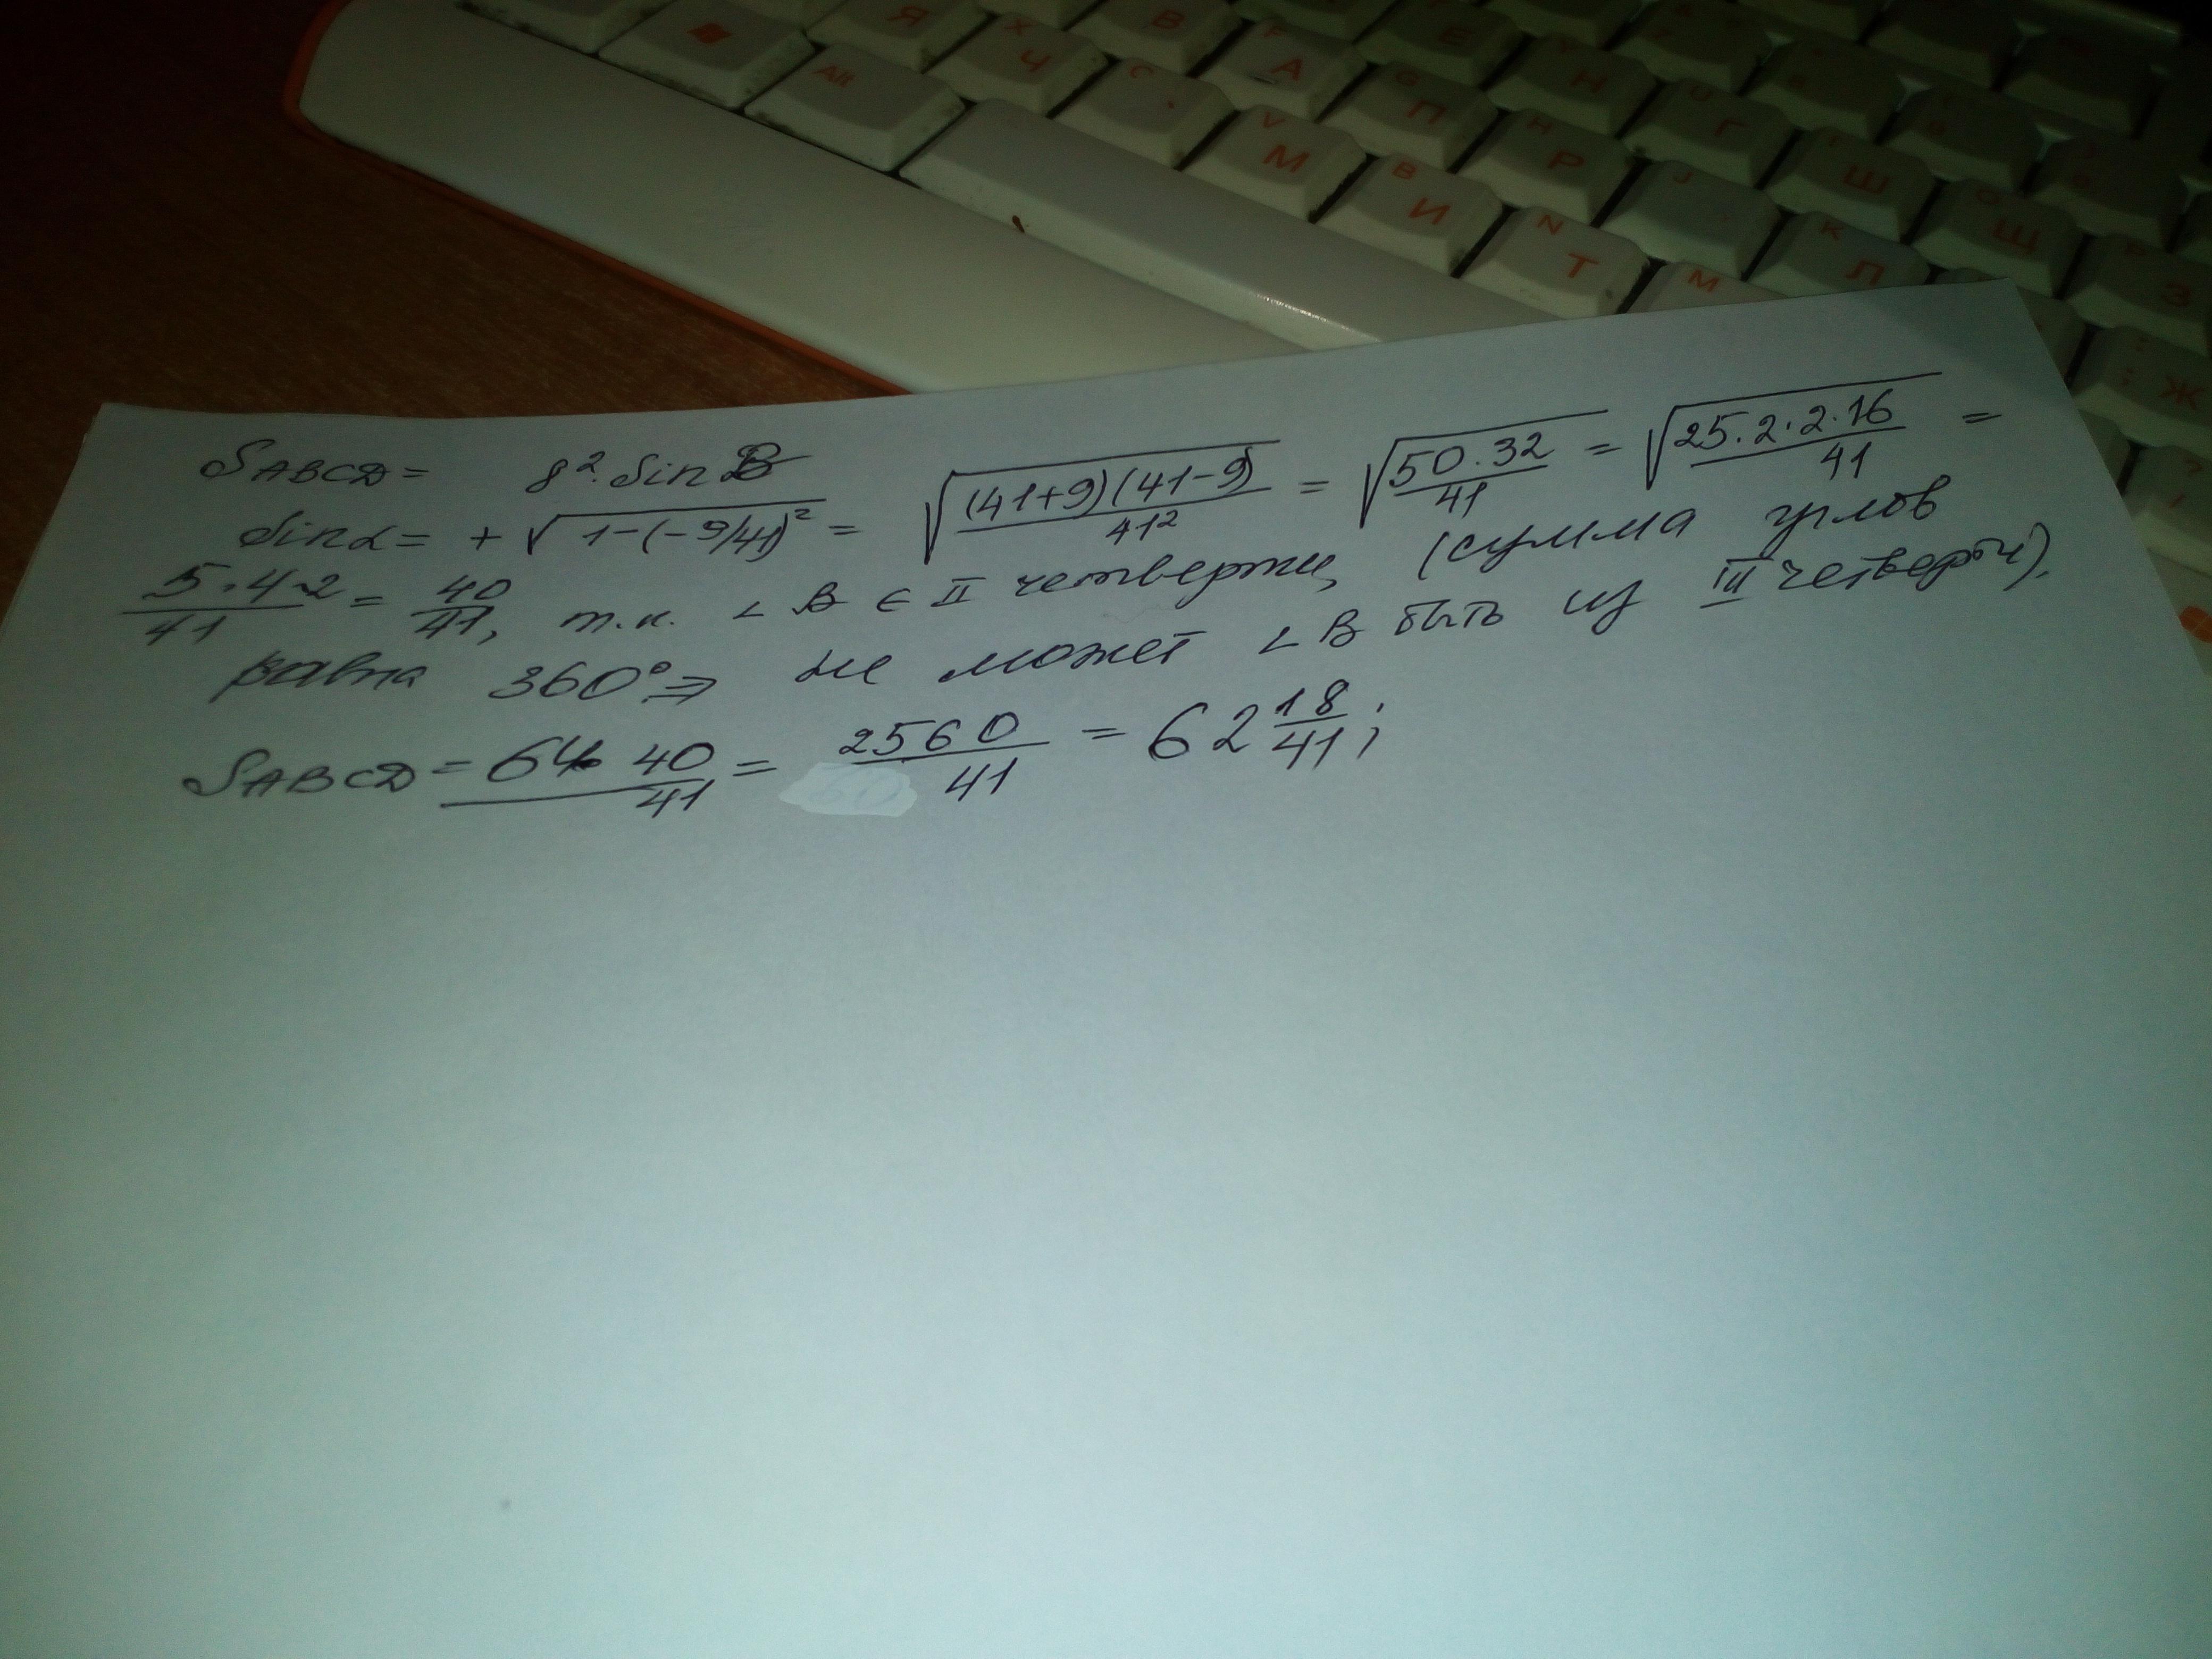 Alt Я Ч В А Е Н
М П Г И Р Ш Т Щ Л З Ж
S ABCD = 8². Sin B
Sin α = + √(1-(-9/41)² = √((41+9)(41-9)/41²) = √(50.32/41) = √(25.2.2.16/41) =
5.4.2/41 = 40/41, т.к. ∠ B ∈ II четверти, (сумма углов
равна 360° ⇒ не может ∠ B быть из III четверти).
S ABCD = 64. 40/41 = 2560/41 = 62 18/41;